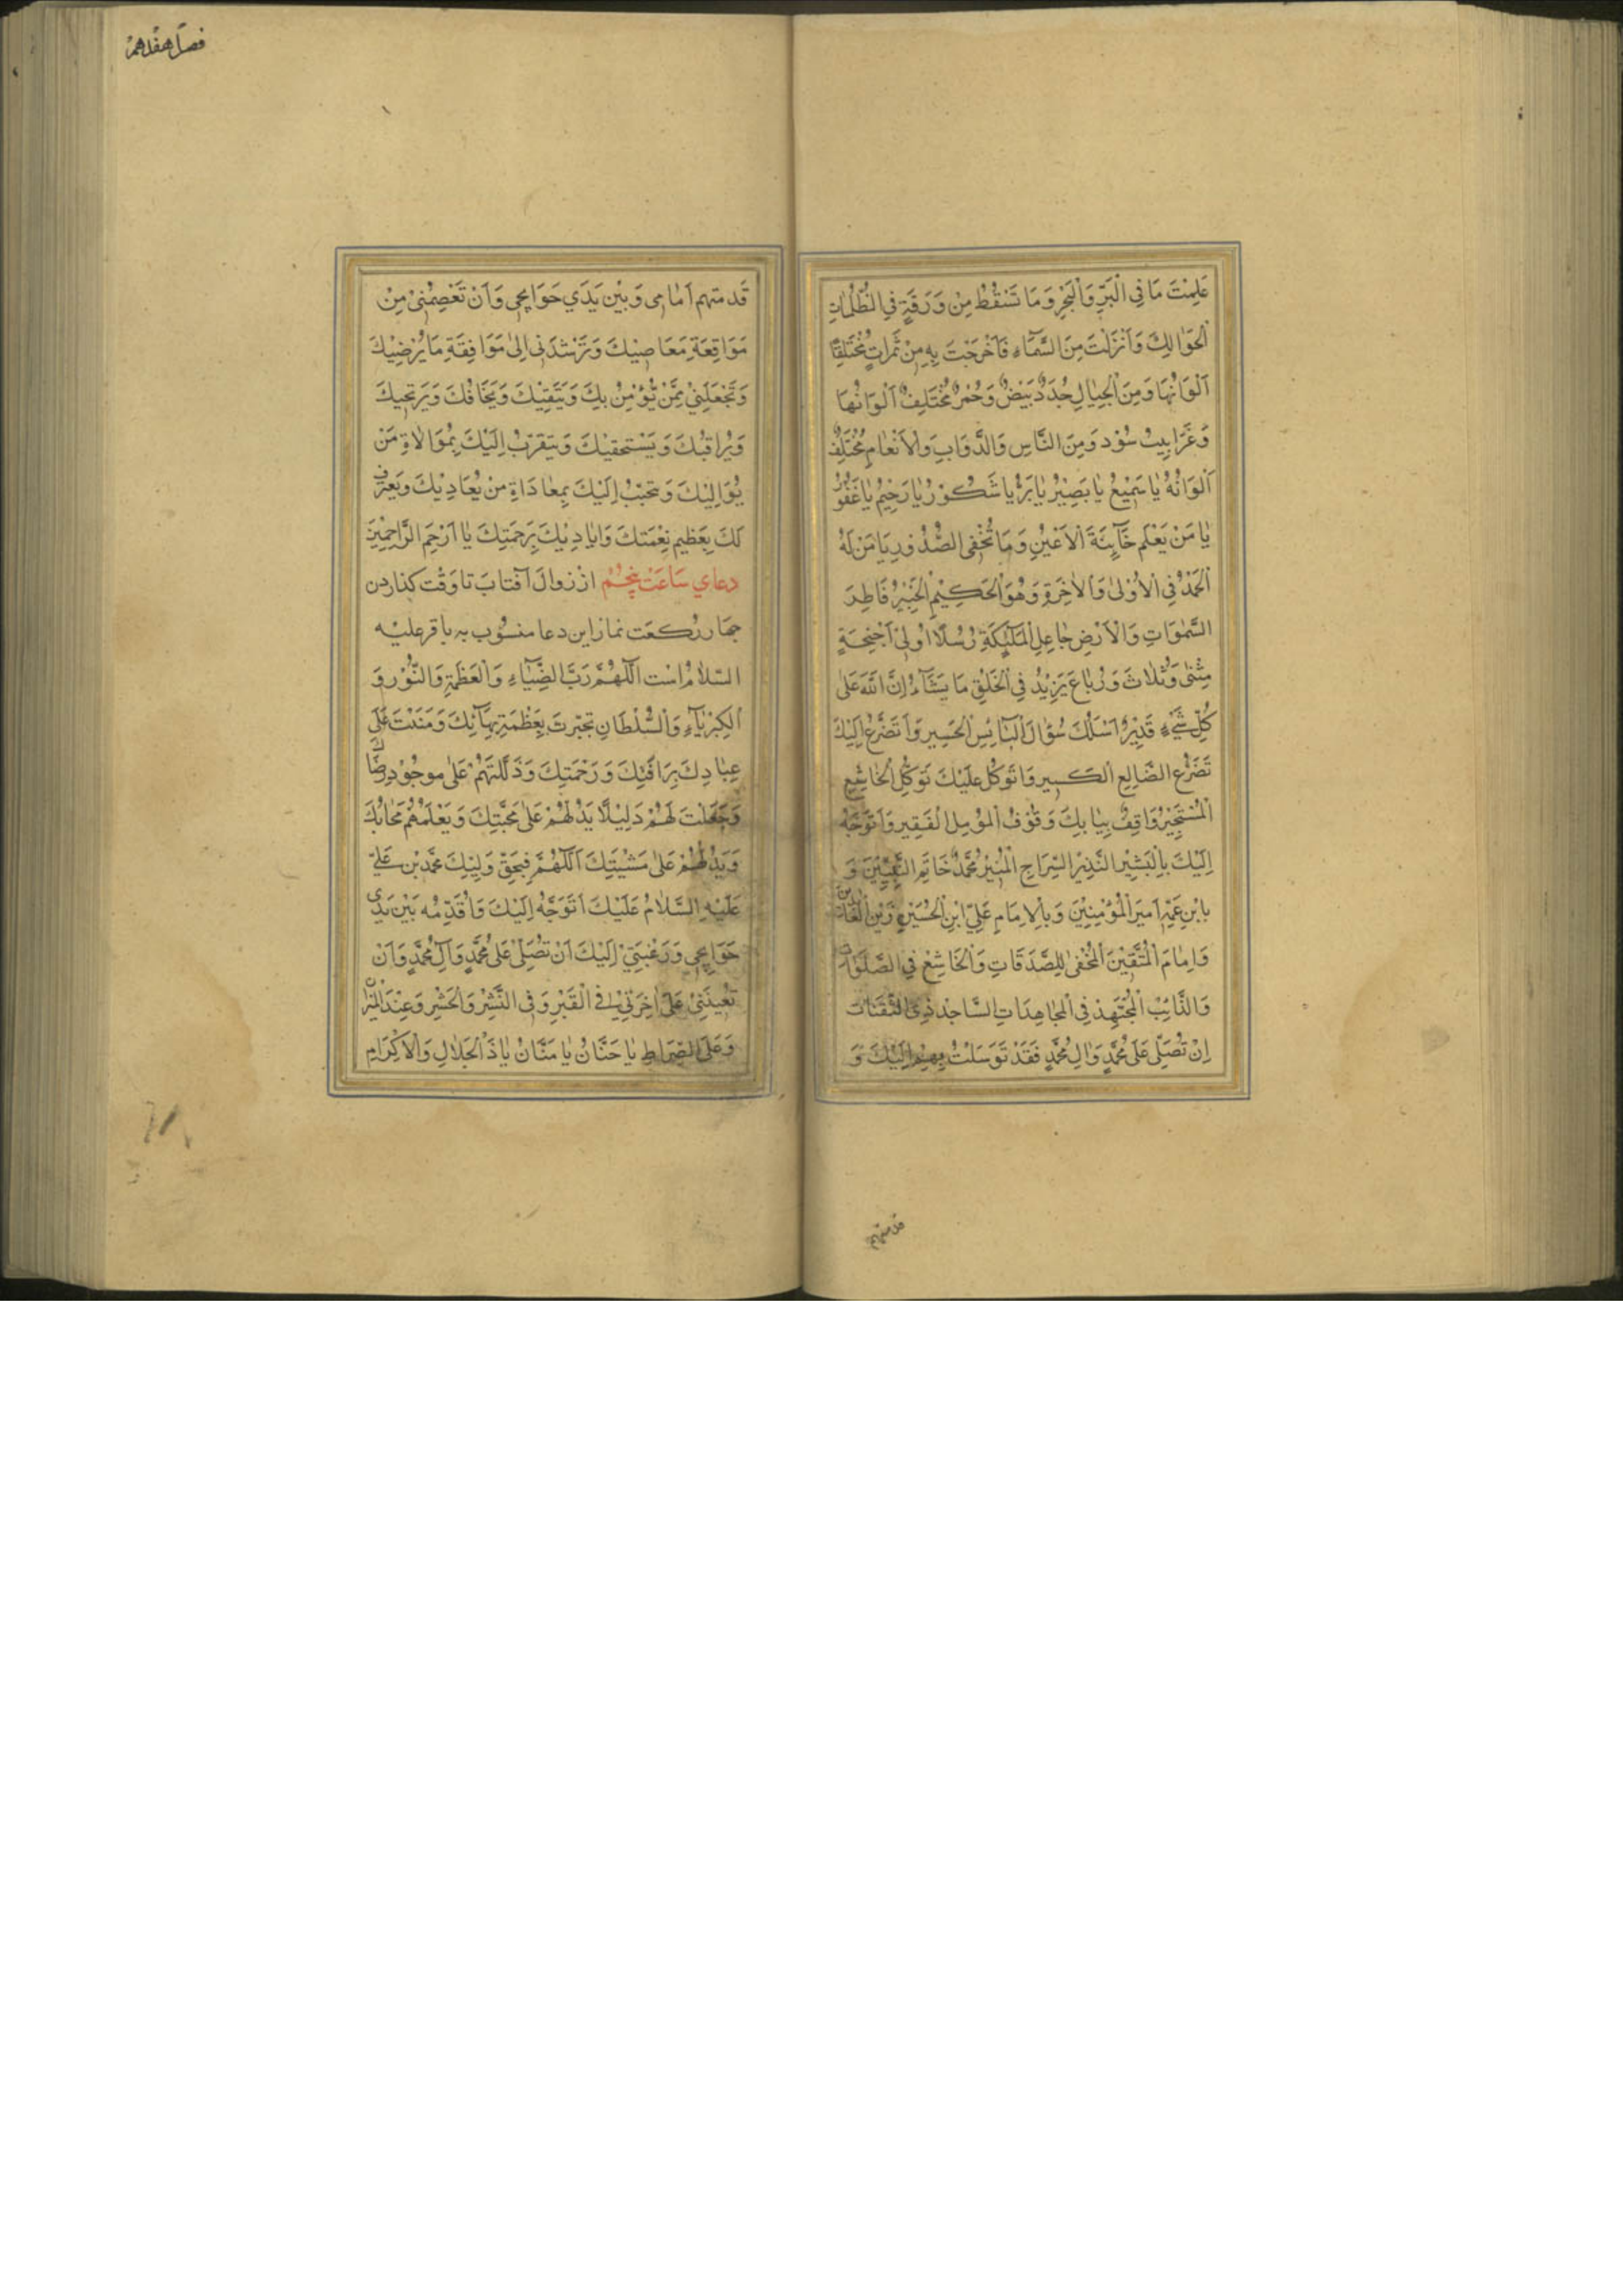 عَلِمْتَ مَا فِي الْبَرِّ وَالْبَحْرِ وَمَا تَسْقُطُ مِنْ وَرَقَةٍ فِي الظُّلُمَاتِ
الْحَوَالِكِ وَاَنْزَلْتَ مِنَ السَّمَاءِ فَاَخْرَجْتَ بِهِ مِنْ ثَمَرَاتٍ مُخْتَلِفًا
اَلْوَانُهَا وَمِنَ الْجِبَالِ جُدَدٌ بَيْضٌ وَحُمْرٌ مُخْتَلِفٌ اَلْوَانُهَا
وَغَرَابِيبُ سُوْد وَمِنَ النَّاسِ وَالدَّوَابِ وَالْاَنْعَامِ مُخْتَلِفٌ
اَلْوَانُهُ يَا سَمِيْعُ يَا بَصِيْرُ يَا بَرُّ يَا شَكُوْرُ يَا رَحِيْمُ يَا غَفُوْرُ
يَا مَنْ يَعْلَم خَآئِنَةَ الْاَعْيُنِ وَمَا تُخْفِي الصُّدُورِ يَا مَنْ لَهُ
الْحَمْدُ فِي الْاُوْلٰى وَالْاٰخِرَةِ وَهُوَ الْحَكِيْمِ الْخَبِيْرِ فَاطِرَ
السَّمٰوَاتِ وَالْاَرْضِ جَاعِلِ الْمَلٰٓئِكَةِ رُسُلًا اُولِيْ اَجْنِحَةٍ
مَثْنٰى وَثُلَاثَ وَرُبَاعَ يَزِيْدُ فِي الْخَلْقِ مَا يَشَآءُ اِنَّ اللّٰهَ عَلٰى
كُلِّ شَيْءٍ قَدِيْرٌ اَسْئَلُكَ سُؤَالَ الْبَائِسِ الْحَسِيرِ وَاَتَضَرَّعُ اِلَيْكَ
تَضَرُّعَ الضَّالِعِ الْكَسِيرِ وَاَتَوَكَّلُ عَلَيْكَ تَوَكُّلَ الْخَاشِعِ
الْمُسْتَجِيْرُ وَاقِفٌ بِبَابِكَ وَقُوْفُ الْمُؤمِلِ الْفَقِيرِ وَاَتَوَجَّهُ
اِلَيْكَ بِالْبَشِيْرِ النَّذِيْرِ السِّرَاجِ الْمُنِيْرِ مُحَمَّدٌ خَاتَمِ النَّبِيِّيْنَ وَ
بِابْنِ عَمِّهِ اَمِيرَ الْمُؤْمِنِيْنَ وَبِالْاِمَامِ عَلِيِّ ابْنِ الْحُسَيْنِ زَيْنِ الْعَابِدِيْنَ
وَاِمَامَ الْمُتَّقِيْنَ الْمُخْفِى لِلصَّدَقَاتِ وَالْخَاشِعْ فِي الصَّلَوَاتِ
وَالدَّائِبْ الْمُجْتَهِدْ فِي الْمُجَاهِدَاتِ السَّاجِدْ ذِي الثَّفَنَاتِ
اِنْ تُصَلِّي عَلٰى مُحَمَّدٍ وَاٰلِ مُحَمَّدٍ فَقَدْ تَوَسَّلْتُ بِهِمْ اِلَيْكَ وَ
قد متهم
فصل هفدهم
قَد متهم اَمَامِى وَبَيْنَ يَدَي حَوَايِجِى وَاَنْ تَعْصِمَنِيْ مِنْ
مَوَاقِعَةِ مَعَاصِيْكَ وَتَرْشُدَنِى اِلٰى مَوَافِقَةِ مَا يُرْضِيْكَ
وَتَجْعَلَنِيْ مِمَّنْ يُؤْمِنُ بِكَ وَيَتَّقِيْكَ وَيَخَافُكَ وَيَرْتَجِيكَ
وَيُرَاقِبُكَ وَيَسْتَحْيِيْكَ وَيَتَقَرَّبُ اِلَيْكَ بِمُوَالَاةِ مَنْ
يُوَالِيْكَ وَيَتَحَبَّبُ اِلَيْكَ بِمُعَادَاةِ مَنْ يُعَادِيْكَ وَيَعْتَرِف
لَكَ بِعَظِيمِ نِعْمَتِكَ وَايَادِيْكَ بِرَحْمَتِكَ يَا اَرْحَمَ الرَّاحِمِيْنَ
دعاي سَاعَتْ پنجُمْ از زوال آفتاب تا وَقْت كذاردن
چهار ركعَت نماز اين دعا منسُوب به باقر عليْه
السّلامُ اسْت اَللّٰهُمَّ رَبَّ الضِّيَآءِ وَالْعَظَمَةِ وَالنُّوْرِ وَ
الْكِبْرِيَآءِ وَالسُّلْطَانِ تَجَبَّرتَ بِعَظْمَةِ بِهَآئِكَ وَمَنَنْتَ عَلٰى
عِبَادِكَ بِرَافَتِكَ وَرَحْمَتِكَ وَدَلَّلْتَهُمْ عَلٰى مَوجُوْدِ رِضَاكَ
وَجَعَلْتَ لَهُمْ دَلِيْلًا يَدُلُهُمْ عَلٰى مَحَبَّتِكَ وَيَعْلَمُهُمْ مَحَابَّكَ
وَيَدُلُهُمْ عَلٰى مَشِيَّتِكَ اَللّٰهُمَّ فَبِحَقِّ وَلِيِّكَ مُحَمَّد بْنِ عَلِيّ
عَلَيْهِ السَّلَامُ عَلَيْكَ اَتَوَجَّهُ اِلَيْكَ وَاُقَدِّمُه بَيْنَ يَدَي
حَوَايِجِي وَرَغْبَتِيْ اِلَيْكَ اَنْ تُصَلِّيَ عَلٰى مُحَمَّدٍ وَآلِ مُحَمَّدٍ وَاَنْ
تُعِيْنَنِيْ عَلٰى اٰخِرَتِيْ فِي الْقَبْرِ وَفِي النَّشْرِ وَالْحَشْرِ وَعِنْدَ الْمِيْزَانِ
وَعَلَى الصِّرَاطِ يَا حَنَّانُ يَا مَنَّانُ يَا ذَا الْجَلَالِ وَالْاِكْرَامِ